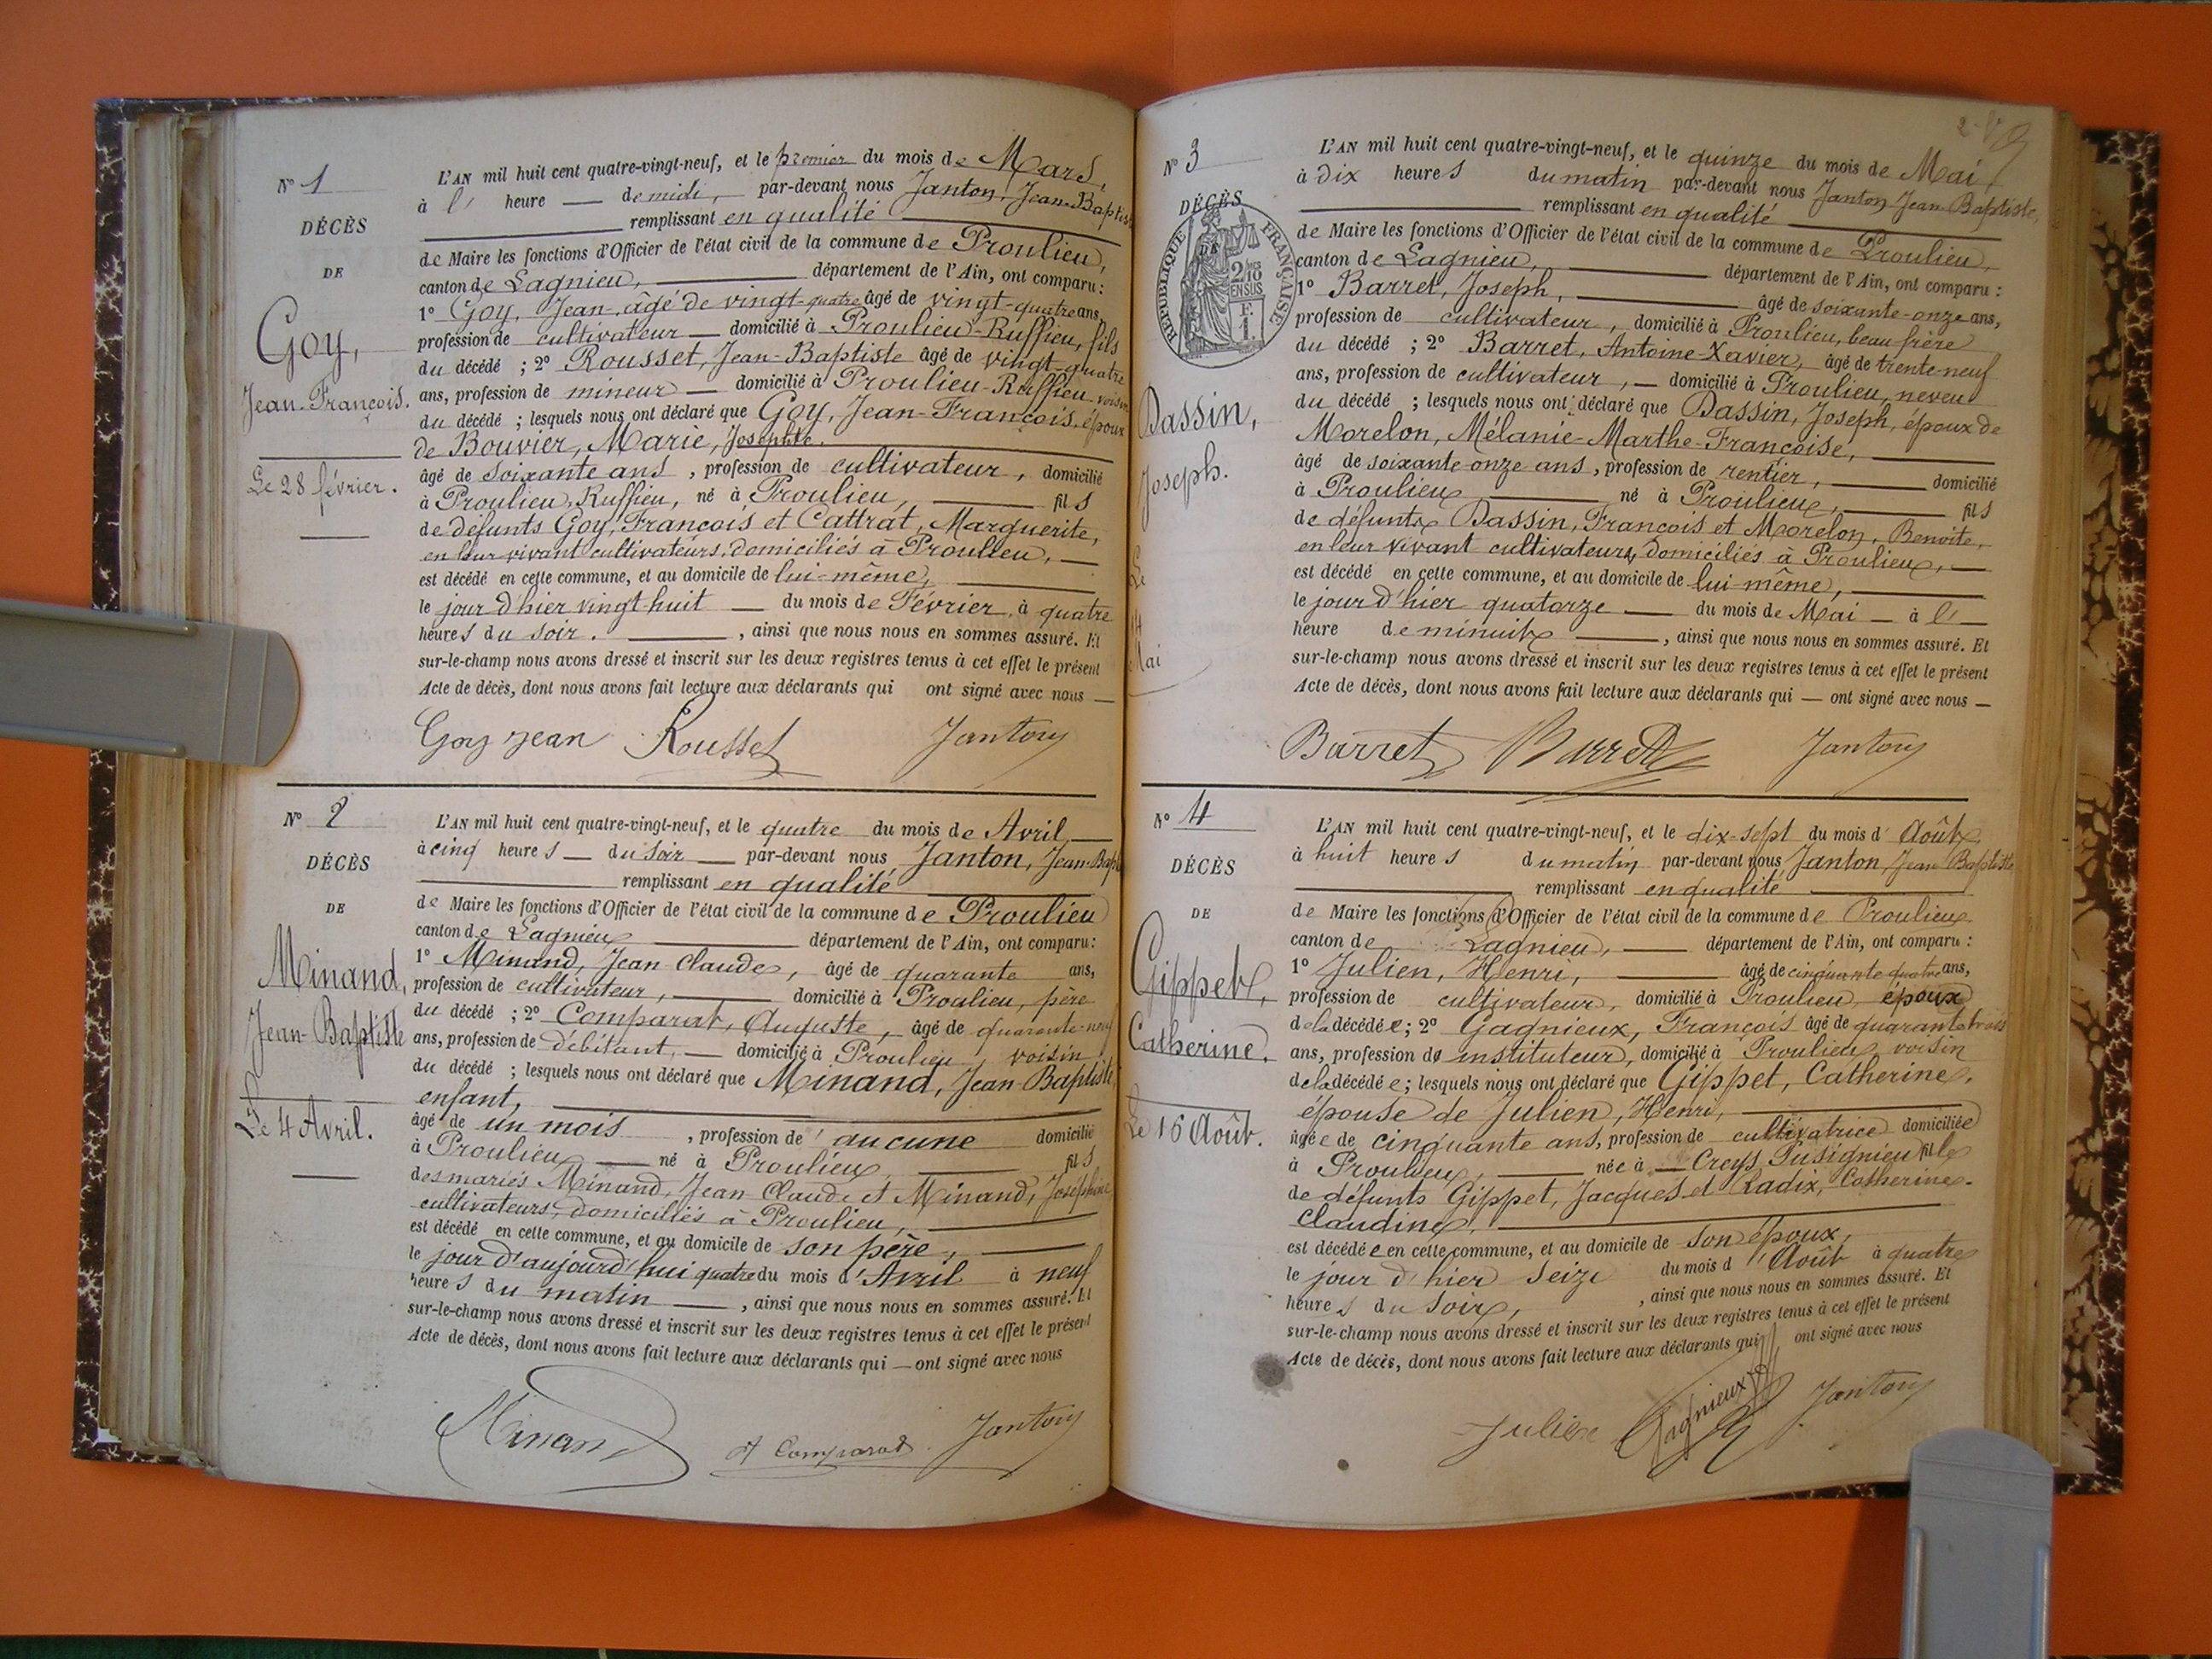 N° 1
DÉCÈS
DE
Goy,
Jean-François.
Le 28 février.
L'AN mil huit cent quatre-vingt-neuf, et le premier du mois de Mars,
à l' heure — de midi, par-devant nous Janton, Jean-Baptiste
remplissant en qualité
de Maire les fonctions d'Officier de l'état civil de la commune de Proulieu,
canton de Lagnieu, département de l'Ain, ont comparu :
1° Goy, Jean, âgé de vingt-quatre âgé de vingt-quatre ans,
profession de cultivateur — domicilié à Proulieu-Ruffieu, fils
du décédé ; 2° Rousset, Jean-Baptiste âgé de vingt-quatre
ans, profession de mineur — domicilié à Proulieu-Ruffieu voisin
du décédé ; lesquels nous ont déclaré que Goy, Jean-François, époux
de Bouvier, Marie, Josephte.
âgé de soixante ans, profession de cultivateur, domicilié
à Proulieu, Ruffieu, né à Proulieu, fils
de défunts Goy, François et Cattrat, Marguerite,
en leur vivant cultivateurs, domiciliés à Proulieu, —
est décédé en cette commune, et au domicile de lui-même,
le jour d'hier vingt-huit — du mois de Février, à quatre
heures du soir. , ainsi que nous nous en sommes assuré. Et
sur-le-champ nous avons dressé et inscrit sur les deux registres tenus à cet effet le présent
Acte de décès, dont nous avons fait lecture aux déclarants qui ont signé avec nous —
Goy Jean Rousset Janton
N° 2
DÉCÈS
DE
Minand,
Jean-Baptiste
Le 4 Avril.
L'AN mil huit cent quatre-vingt-neuf, et le quatre du mois de Avril,
à cinq heures — du soir — par-devant nous Janton, Jean-Bapt
remplissant en qualité
de Maire les fonctions d'Officier de l'état civil de la commune de Proulieu
canton de Lagnieu département de l'Ain, ont comparu :
1° Minand, Jean Claude, âgé de quarante ans,
profession de cultivateur, domicilié à Proulieu, père
du décédé ; 2° Comparat, Auguste, âgé de quarante-neuf
ans, profession de débitant, — domicilié à Proulieu, voisin
du décédé ; lesquels nous ont déclaré que Minand, Jean-Baptiste,
enfant,
âgé de un mois , profession de aucune domicilié
à Proulieu — né à Proulieu, fils
des mariés Minand, Jean Claude et Minand, Joséphine
cultivateurs, domiciliés à Proulieu,
est décédé en cette commune, et au domicile de son père,
le jour d'aujourd'hui quatre du mois d'Avril à neuf
heures du matin — , ainsi que nous nous en sommes assuré. Et
sur-le-champ nous avons dressé et inscrit sur les deux registres tenus à cet effet le présent
Acte de décès, dont nous avons fait lecture aux déclarants qui — ont signé avec nous
Minand A Comparat Janton
N° 3
DÉCÈS
DE
RÉPUBLIQUE FRANÇAISE
2/10 EN SUS
F. 1.
Dassin,
Joseph.
Le
14
Mai
L'AN mil huit cent quatre-vingt-neuf, et le quinze du mois de Mai,
à dix heures du matin par-devant nous Janton Jean-Baptiste,
remplissant en qualité
de Maire les fonctions d'Officier de l'état civil de la commune de Proulieu,
canton de Lagnieu, département de l'Ain, ont comparu :
1° Barret, Joseph, âgé de soixante-onze ans,
profession de cultivateur, domicilié à Proulieu, beau frère
du décédé ; 2° Barret, Antoine-Xavier, âgé de trente-neuf
ans, profession de cultivateur, — domicilié à Proulieu, neveu
du décédé ; lesquels nous ont déclaré que Dassin, Joseph, époux de
Morelon, Mélanie-Marthe-Françoise,
âgé de soixante-onze ans, profession de rentier, domicilié
à Proulieu, né à Proulieu, fils
de défunts Dassin, François et Morelon, Benoîte,
en leur vivant cultivateurs, domiciliés à Proulieu, —
est décédé en cette commune, et au domicile de lui-même,
le jour d'hier quatorze — du mois de Mai — à l' —
heure de minuit , ainsi que nous nous en sommes assuré. Et
sur-le-champ nous avons dressé et inscrit sur les deux registres tenus à cet effet le présent
Acte de décès, dont nous avons fait lecture aux déclarants qui — ont signé avec nous —
Barret Barret Janton
N° 4
DÉCÈS
DE
Gippet,
Catherine.
Le 16 Août.
L'AN mil huit cent quatre-vingt-neuf, et le dix-sept du mois d' Août
à huit heures du matin par-devant nous Janton, Jean Baptiste
remplissant en qualité
de Maire les fonctions d'Officier de l'état civil de la commune de Proulieu
canton de Lagnieu, — département de l'Ain, ont comparu :
1° Julien, Henri, âgé de cinquante quatre ans,
profession de cultivateur, domicilié à Proulieu époux
de la décédée ; 2° Gagnieux, François âgé de quarante trois
ans, profession de instituteur, domicilié à Proulieu voisin
de la décédée ; lesquels nous ont déclaré que Gippet, Catherine,
épouse de Julien, Henri,
âgée de cinquante ans, profession de cultivatrice domiciliée
à Proulieu, née à — Creys Pusignieu fille
de défunts Gippet, Jacques et Radix, Catherine-
Claudine,
est décédée en cette commune, et au domicile de son époux,
le jour d'hier seize du mois d'Août à quatre
heures du soir, , ainsi que nous nous en sommes assuré. Et
sur-le-champ nous avons dressé et inscrit sur les deux registres tenus à cet effet le présent
Acte de décès, dont nous avons fait lecture aux déclarants qui ont signé avec nous
Julien Gagnieux Janton